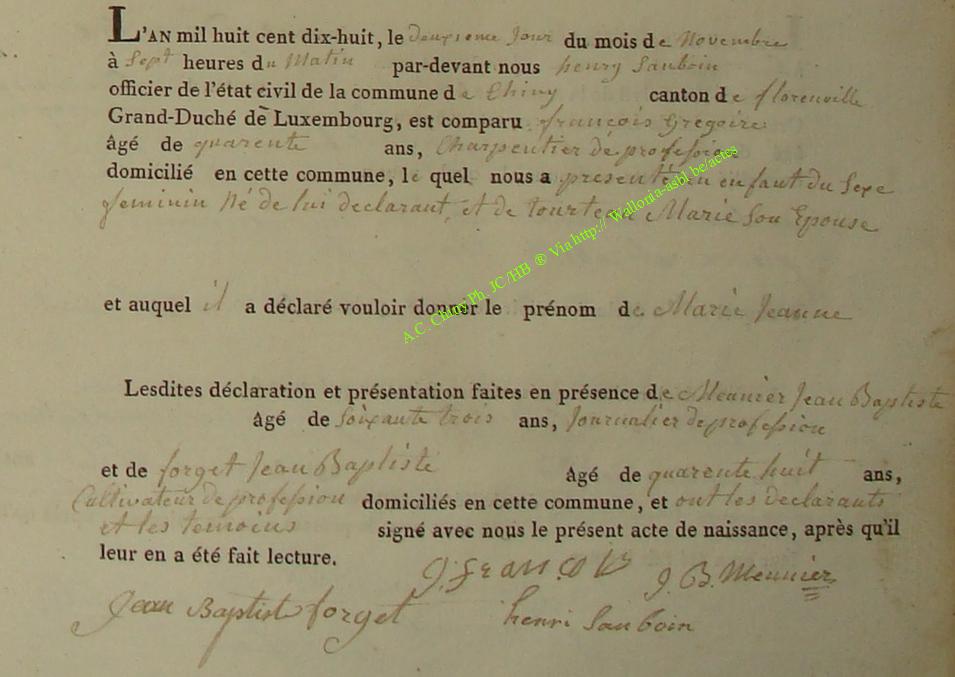 L'AN mil huit cent dix-huit, le deuxieme Jour du mois de Novembre
à Sept heures du Matin par-devant nous henry Sauboin
officier de l'état civil de la commune de Chiny canton de florenville
Grand-Duché de Luxembourg, est comparu françois Gregoire
âgé de quarente ans, Charpentier de profession
domicilié en cette commune, le quel nous a presenté un enfant du Sexe
feminin Né de lui declarant, et de tourteau Marie Son Epouse
et auquel il a déclaré vouloir donner le prénom de Marie Jeanne
Lesdites déclaration et présentation faites en présence de Meunier Jean Baptiste
âgé de Soixante trois ans, Journalier de profession
et de forget Jean Baptiste âgé de quarente huit ans,
Cultivateur de profession domiciliés en cette commune, et ont les declarants
et les temoins signé avec nous le présent acte de naissance, après qu'il
leur en a été fait lecture.
J. B. Meunier
Jean Baptist forget henri Sauboin
A.C. Chiny Ph. JC /HB ® Via http:// Wallonia-asbl.be/actes